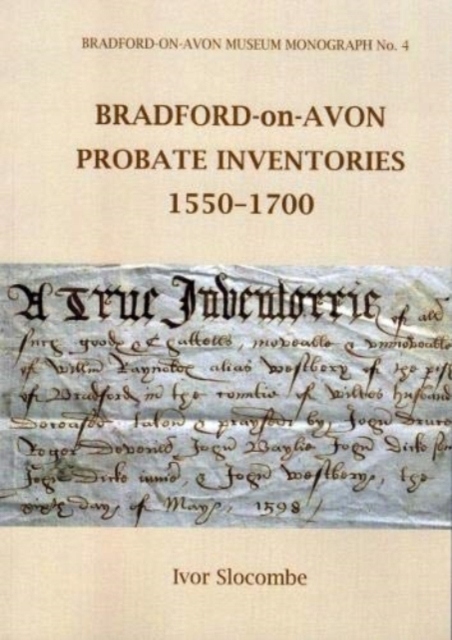 BRADFORD-ON-AVON MUSEUM MONOGRAPH No. 4
BRADFORD-on-AVON
PROBATE INVENTORIES
1550–1700
A True Inventorrie of all
goods & cattells, moveable & unmoveable
of Willm Raynolds alias westbery of the
of Bradford in the countie of wiltes husband
deceased taken & praysed by John
Roger John Baylie John Dicke
John Dicke & John westbery, the
day of Maye, 1598
Ivor Slocombe